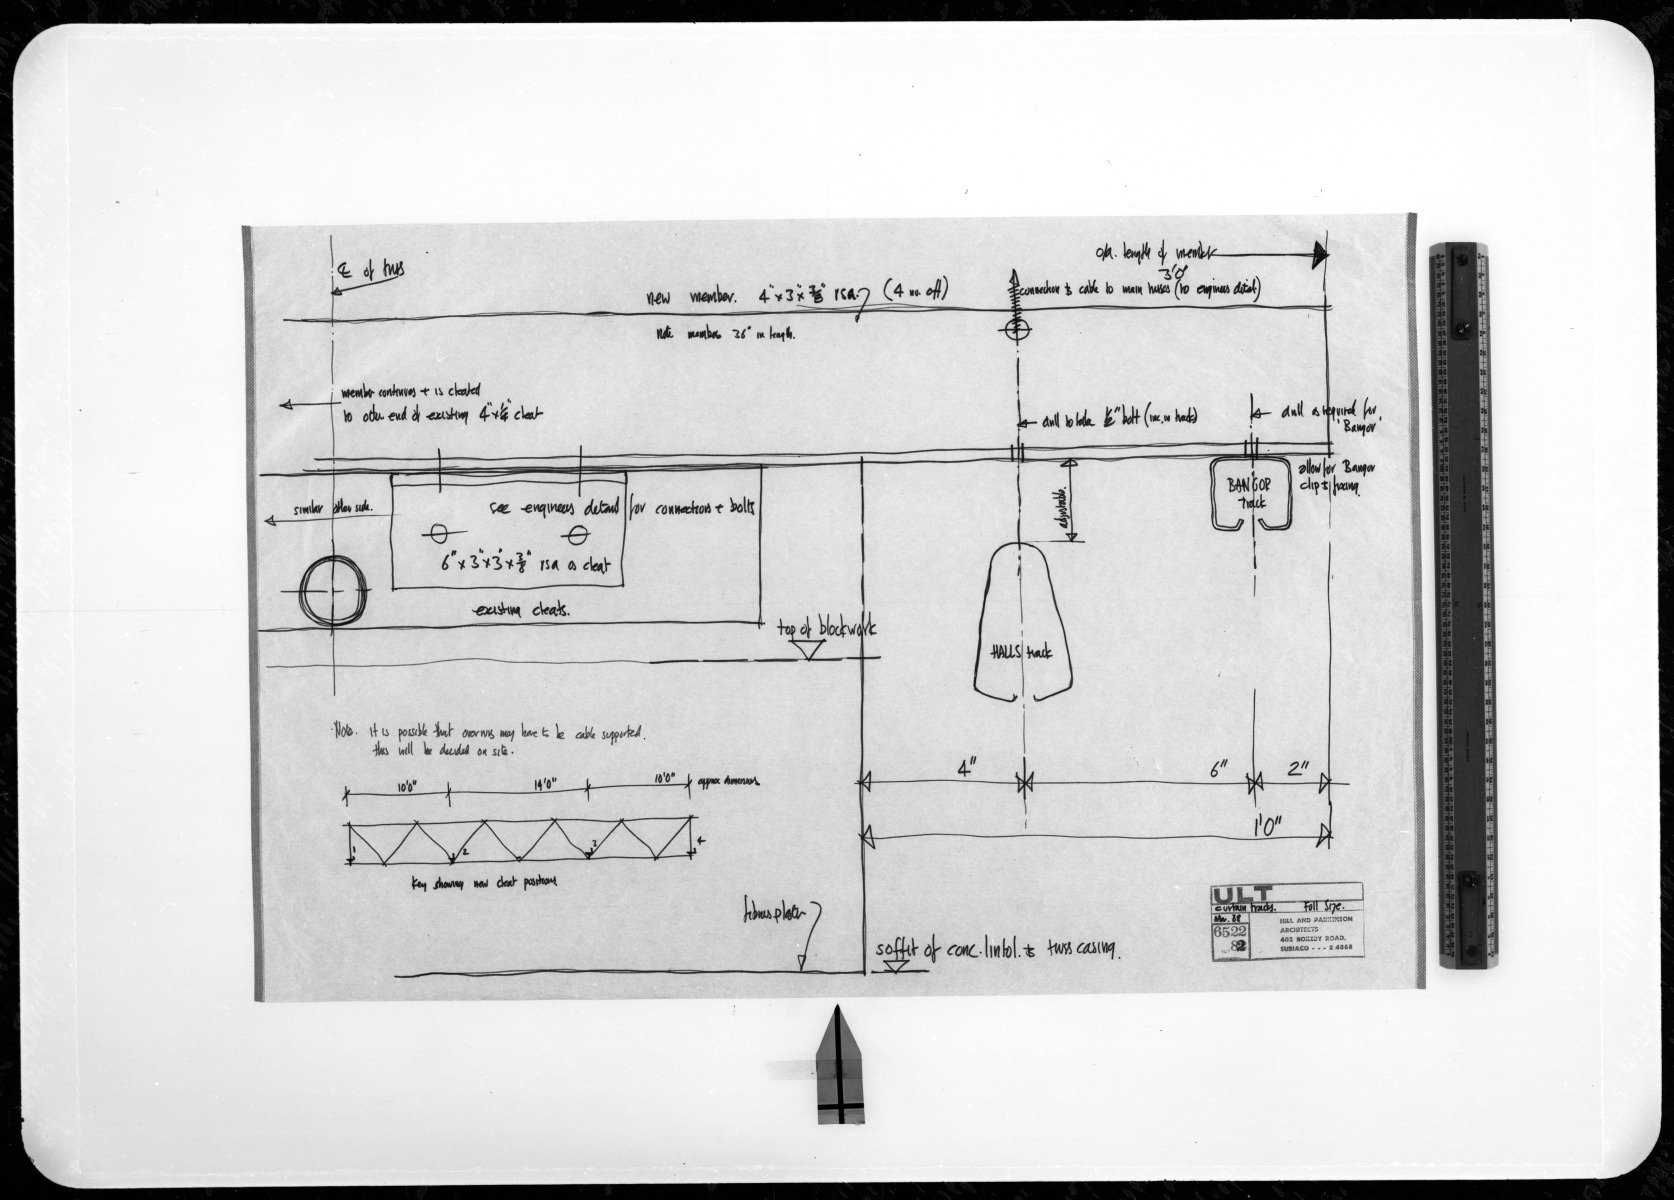 ℄ of truss
o/a. length of member
3'0"
new member. 4" x 3" x 3/8" rsa. (4 no. off)
connection & cable to main trusses (to engineers detail)
Note members 36" in length.
member continues + is cleated
to other end of existing 4" x 1/4" cleat
drill to take 1/2" bolt (inc. in track)
drill as required for
'Bangor'
similar other side.
see engineers detail for connections + bolts
6" x 3" x 3" x 3/8" rsa as cleat
existing cleats.
adjustable.
BANGOR
track
allow for Bangor
clip & fixing.
top of blockwork
HALLS track
Note. It is possible that overruns may have to be cable supported.
this will be decided on site.
10'0" 14'0" 10'0" approx dimensions
1 2 3 4
Key showing new cleat positions
4" 6" 2"
1'0"
fibrous plaster
soffit of conc. lintol. & truss casing.
ULT
curtain tracks. Full Size.
Mar. 68
6522
82
HILL AND PARKINSON
ARCHITECTS
402 ROKEBY ROAD,
SUBIACO - - - 8 4868